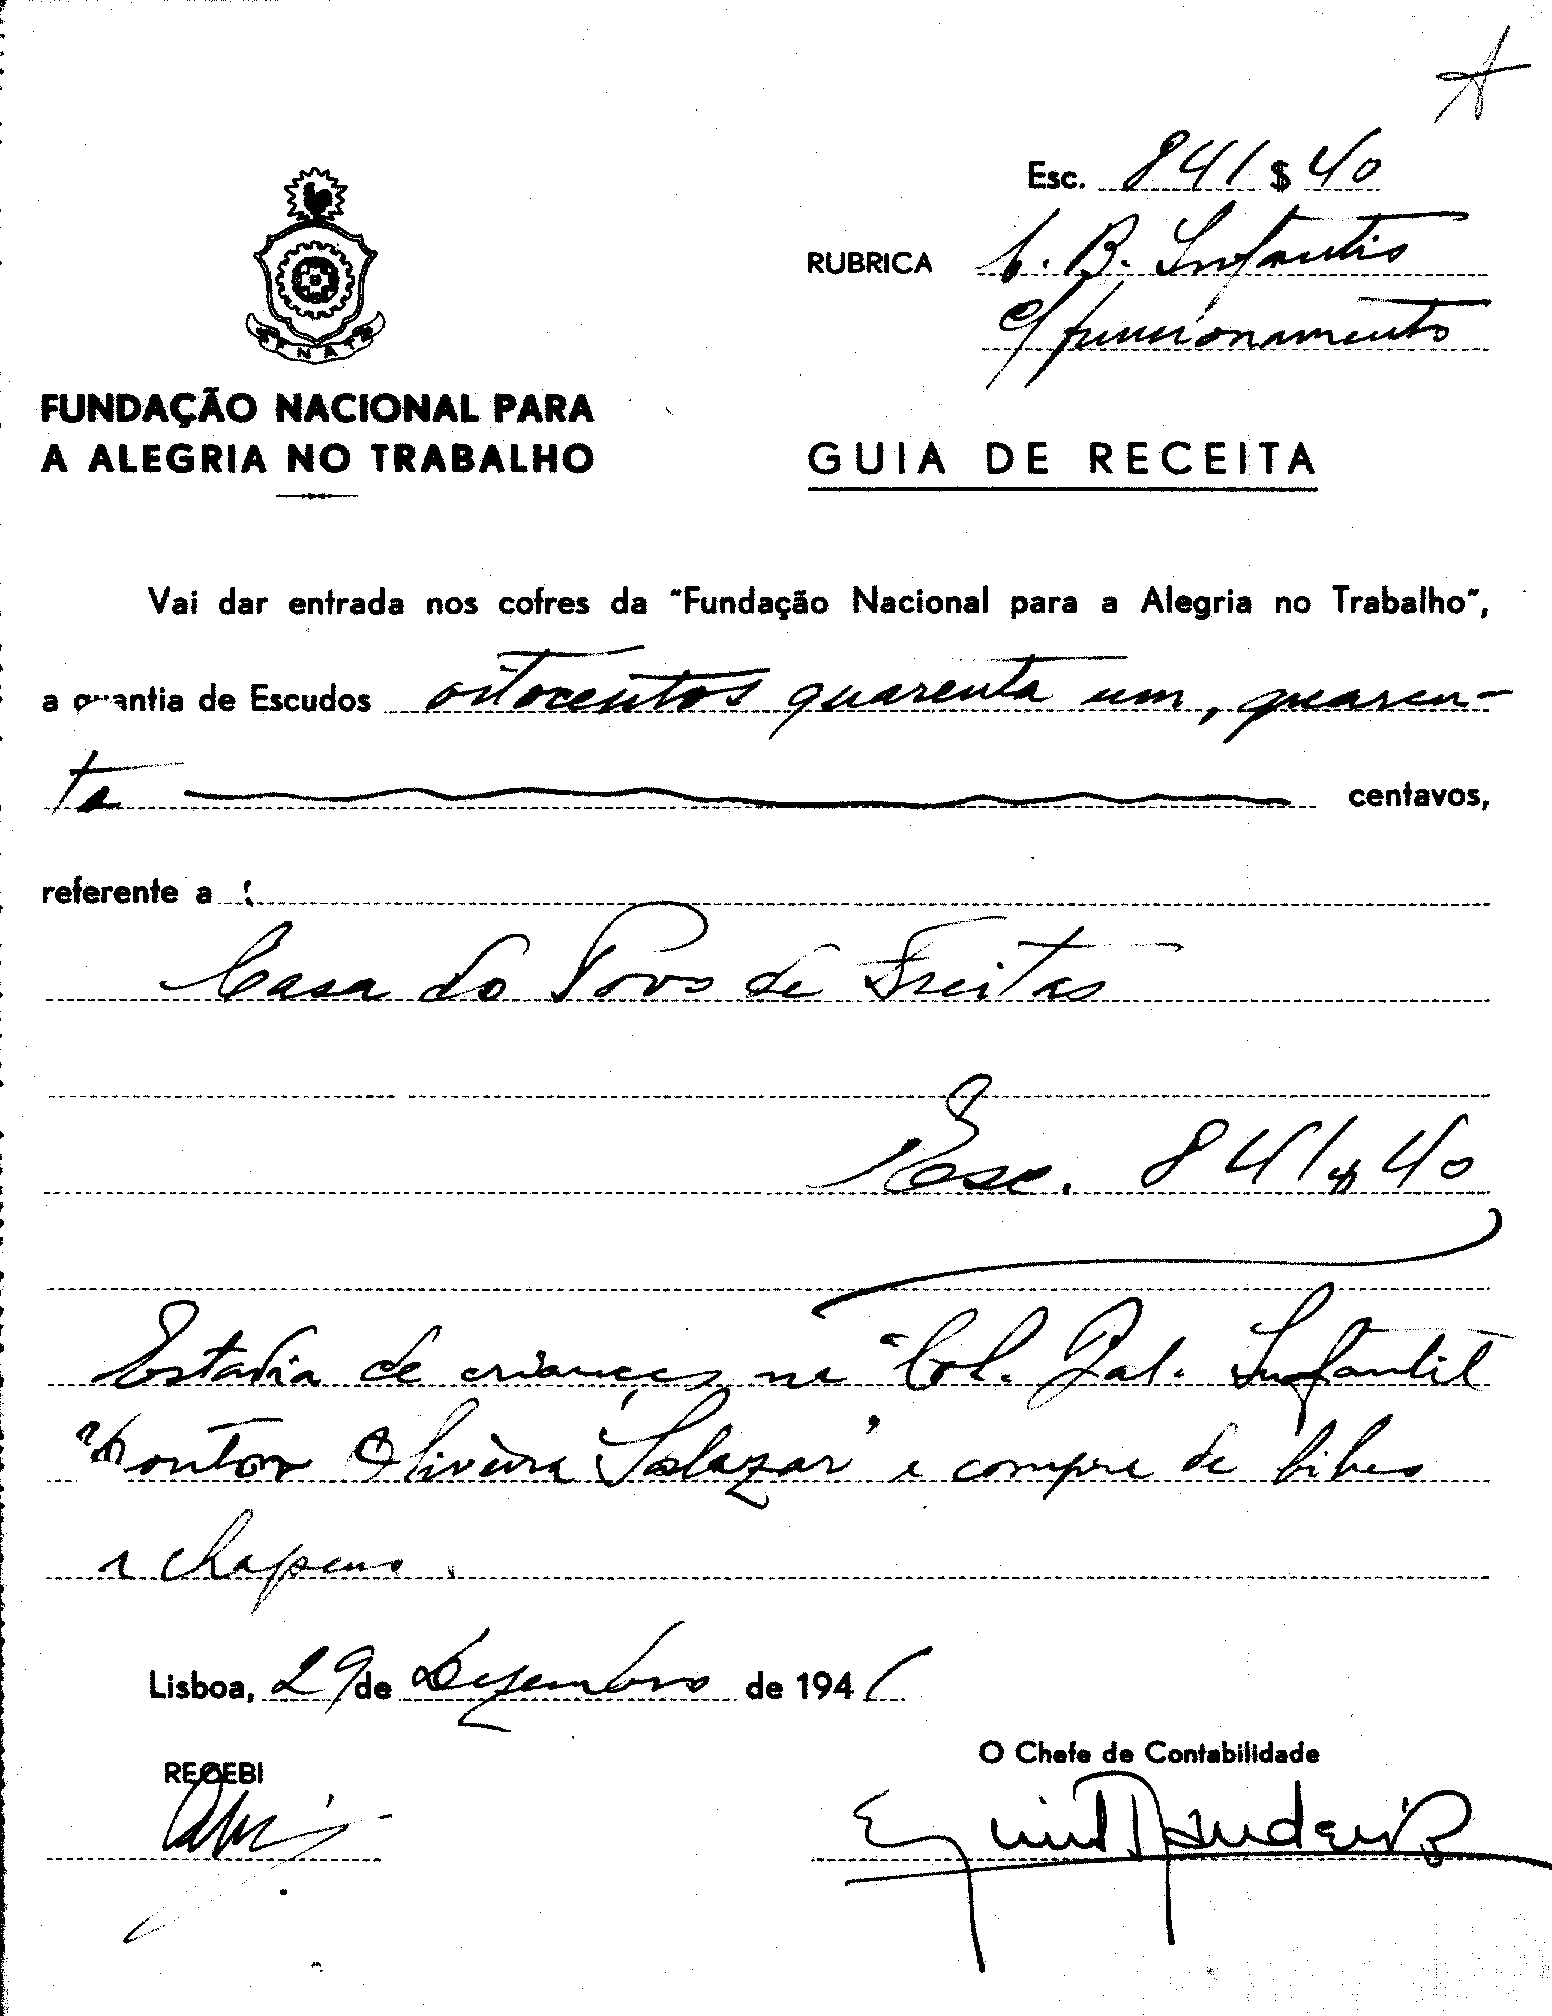 Esc. 841 $ 40
RUBRICA C. B. Infantis
c/ funcionamento
FUNDAÇÃO NACIONAL PARA
A ALEGRIA NO TRABALHO
GUIA DE RECEITA
Vai dar entrada nos cofres da "Fundação Nacional para a Alegria no Trabalho",
a quantia de Escudos oitocentos quarenta um, quaren-
ta centavos,
referente a :
Casa do Povo de Freitas
Esc. 841$40
Estadia de crianças na "Col. Bal. Infantil
"Doutor Oliveira Salazar" e compra de bibes
e chapeus.
Lisboa, 29 de Dezembro de 1941
RECEBI
O Chefe de Contabilidade